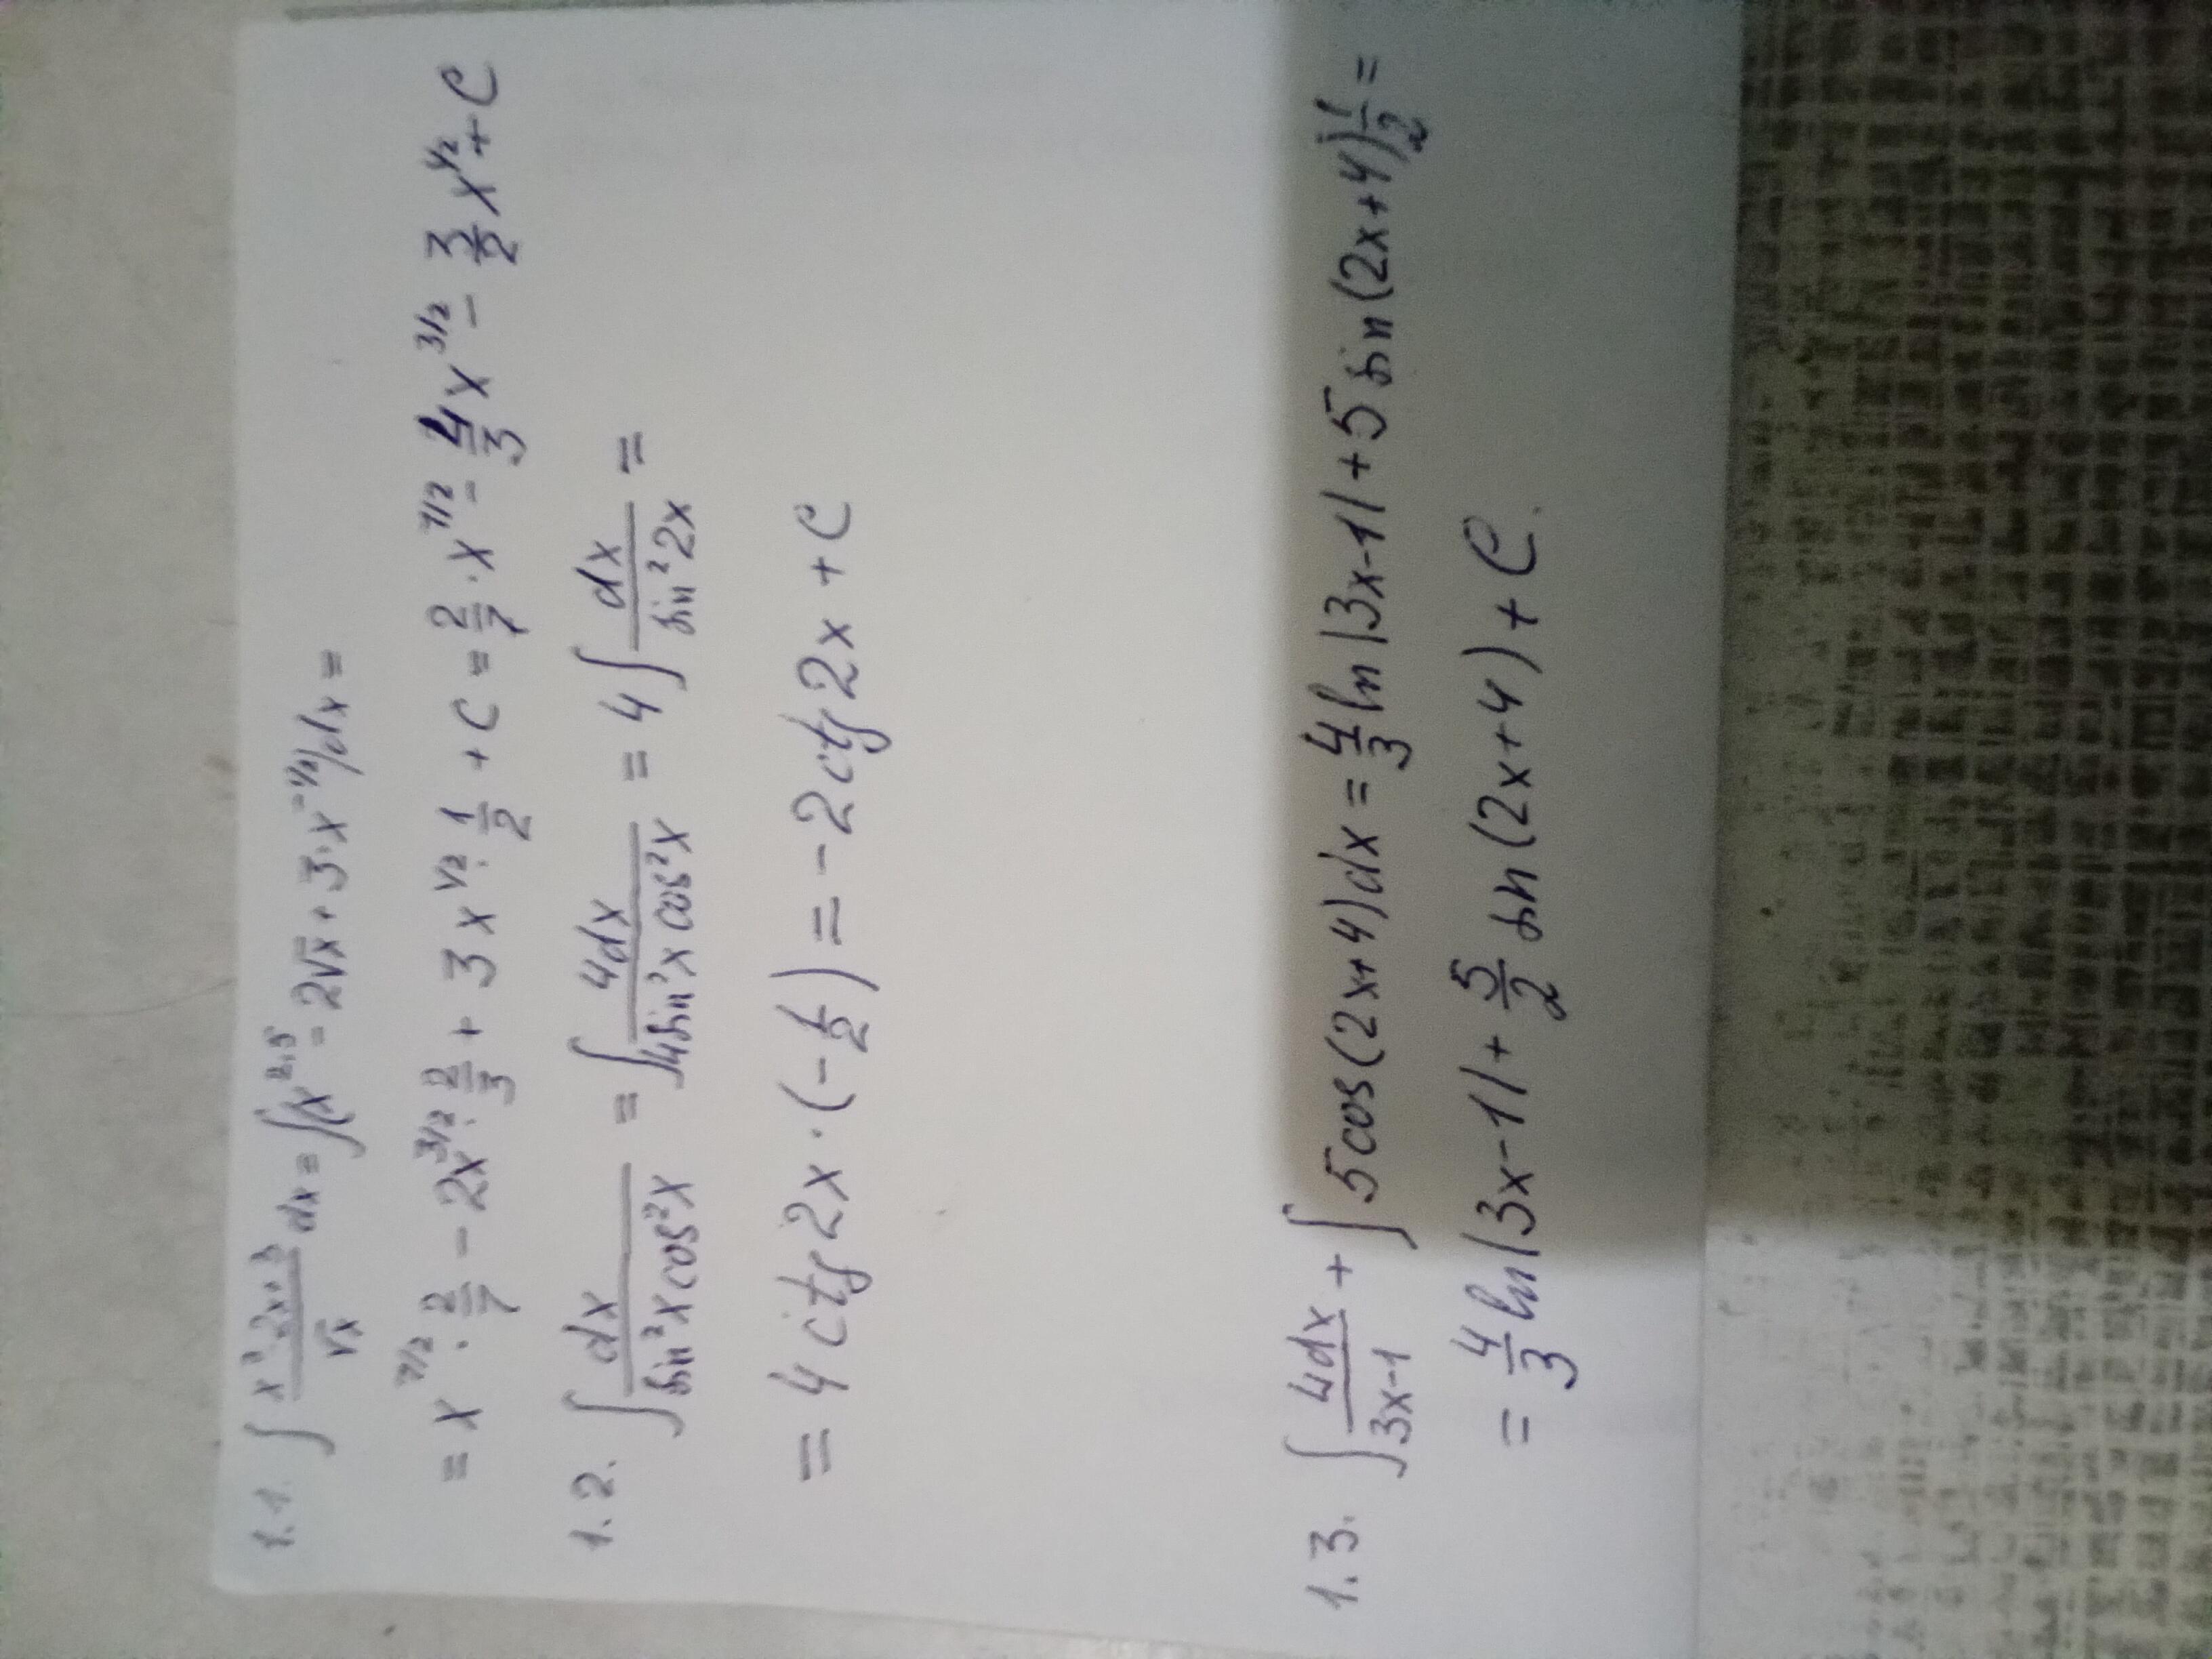 1.1. ∫ (x³-2x+3)/√x dx = ∫(x^2,5 - 2√x + 3·x^-1/2)dx =
= x^7/2 · 2/7 - 2x^3/2 · 2/3 + 3x^1/2 · 1/2 + C = 2/7 · x^7/2 - 4/3 x^3/2 - 3/2 x^1/2 + C
1.2. ∫ dx/(sin²x cos²x) = ∫ 4dx/(4sin²x cos²x) = 4∫ dx/(sin²2x) =
= 4ctg2x · (-1/2) = -2ctg2x + C
1.3. ∫ 4dx/(3x-1) + ∫5cos(2x+4)dx = 4/3 ln|3x-1| + 5sin(2x+4) 1/2 =
= 4/3 ln|3x-1| + 5/2 sin(2x+4) + C.